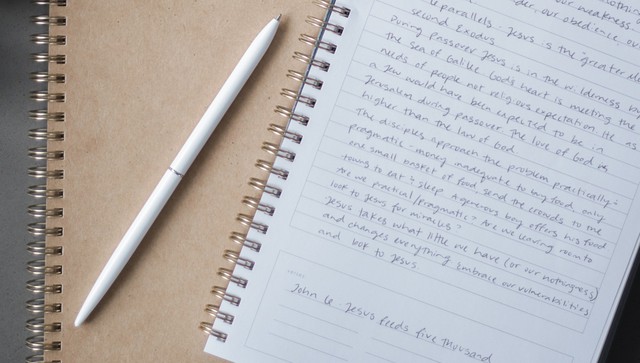 our weakness
parallels. Jesus is the "greater
second Exodus
During passover Jesus is in the wilderness by
the sea of Galilee. God's heart is meeting the
needs of people not religious expectation. He as
a Jew would have been expected to be in
Jerusalem during passover. The love of God is
higher than the law of God
The disciples approach the problem practically +
pragmatic - money inadequate to buy food, only
one small basket of food, send the crowds to the
towns to eat & sleep. A generous boy offers his food
Are we practical/pragmatic? Are we leaving room to
look to Jesus for miracles?
Jesus takes what little we have (or our nothingness)
and changes everything. Embrace our vulnerabilities
and look to Jesus
NOTES
John 6 - Jesus feeds five thousand